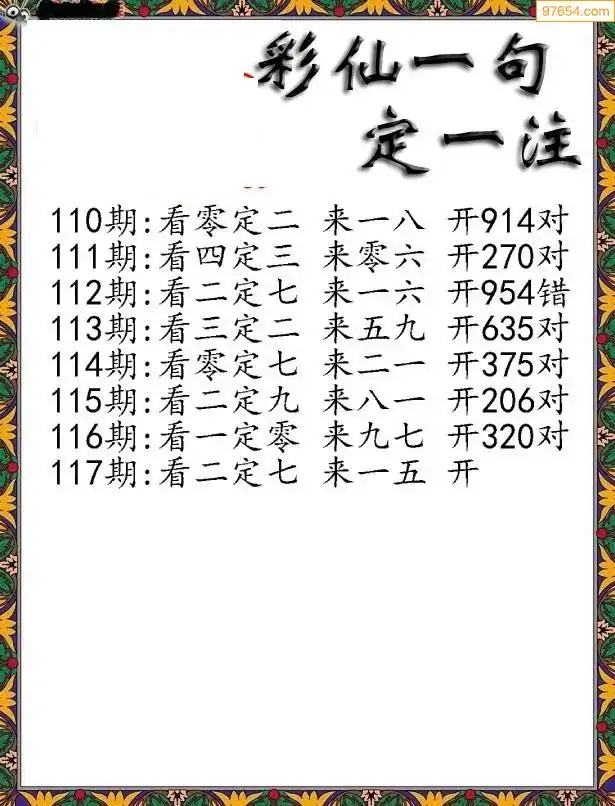 97654.com
彩仙一句
定一注
110期:看零定二 来一八 开914对
111期:看四定三 来零六 开270对
112期:看二定七 来一六 开954错
113期:看三定二 来五九 开635对
114期:看零定七 来二一 开375对
115期:看二定九 来八一 开206对
116期:看一定零 来九七 开320对
117期:看二定七 来一五 开